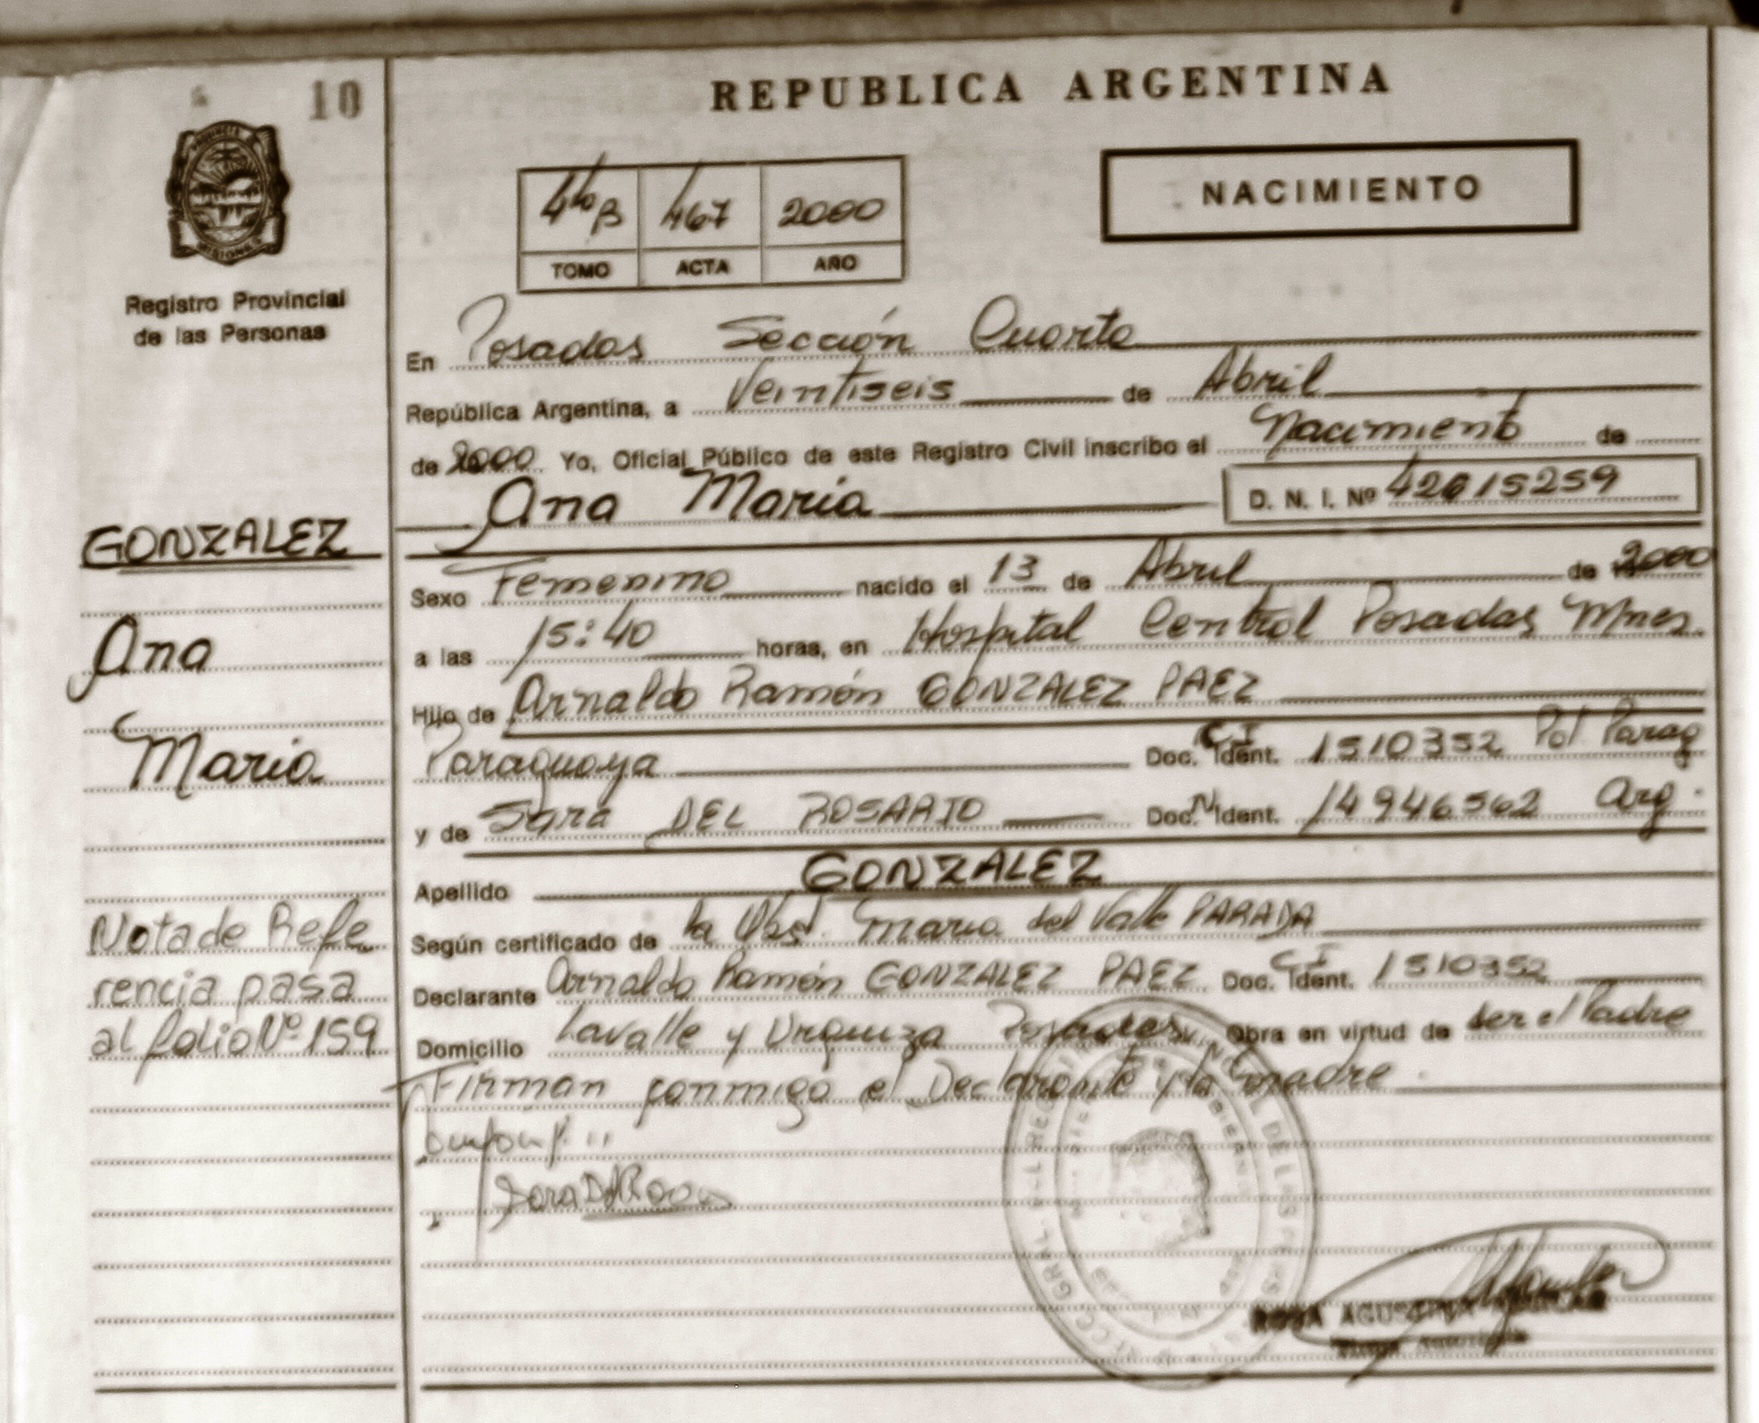 10
REPUBLICA ARGENTINA
NACIMIENTO
4to B 467 2000
TOMO ACTA AÑO
MISIONES
Registro Provincial
de las Personas
En Posadas Sección Cuarta
República Argentina, a Veintiseis de Abril
de 2000 Yo, Oficial Público de este Registro Civil inscribo el Nacimiento de
Ana María D. N. I. Nº 42615259
GONZALEZ
Ana
María
Sexo Femenino nacido el 13 de Abril de 2000
a las 15:40 horas, en Hospital Central Posadas Mnes.
Hijo de Arnaldo Ramón GONZALEZ PAEZ
Paraguaya Doc. Ident. C I 1510352 Pol Parag
y de Sara DEL ROSARIO Doc. Ident. N 14946562 Arg.
Apellido GONZALEZ
Según certificado de la Obst. Maria del Valle PARADA
Declarante Arnaldo Ramón GONZALEZ PAEZ Doc. Ident. C I 1510352
Domicilio Lavalle y Urquiza Posadas Obra en virtud de ser el Padre
Firman conmigo el Declarante y la madre.
Nota de Refe
rencia pasa
al folio Nº 159